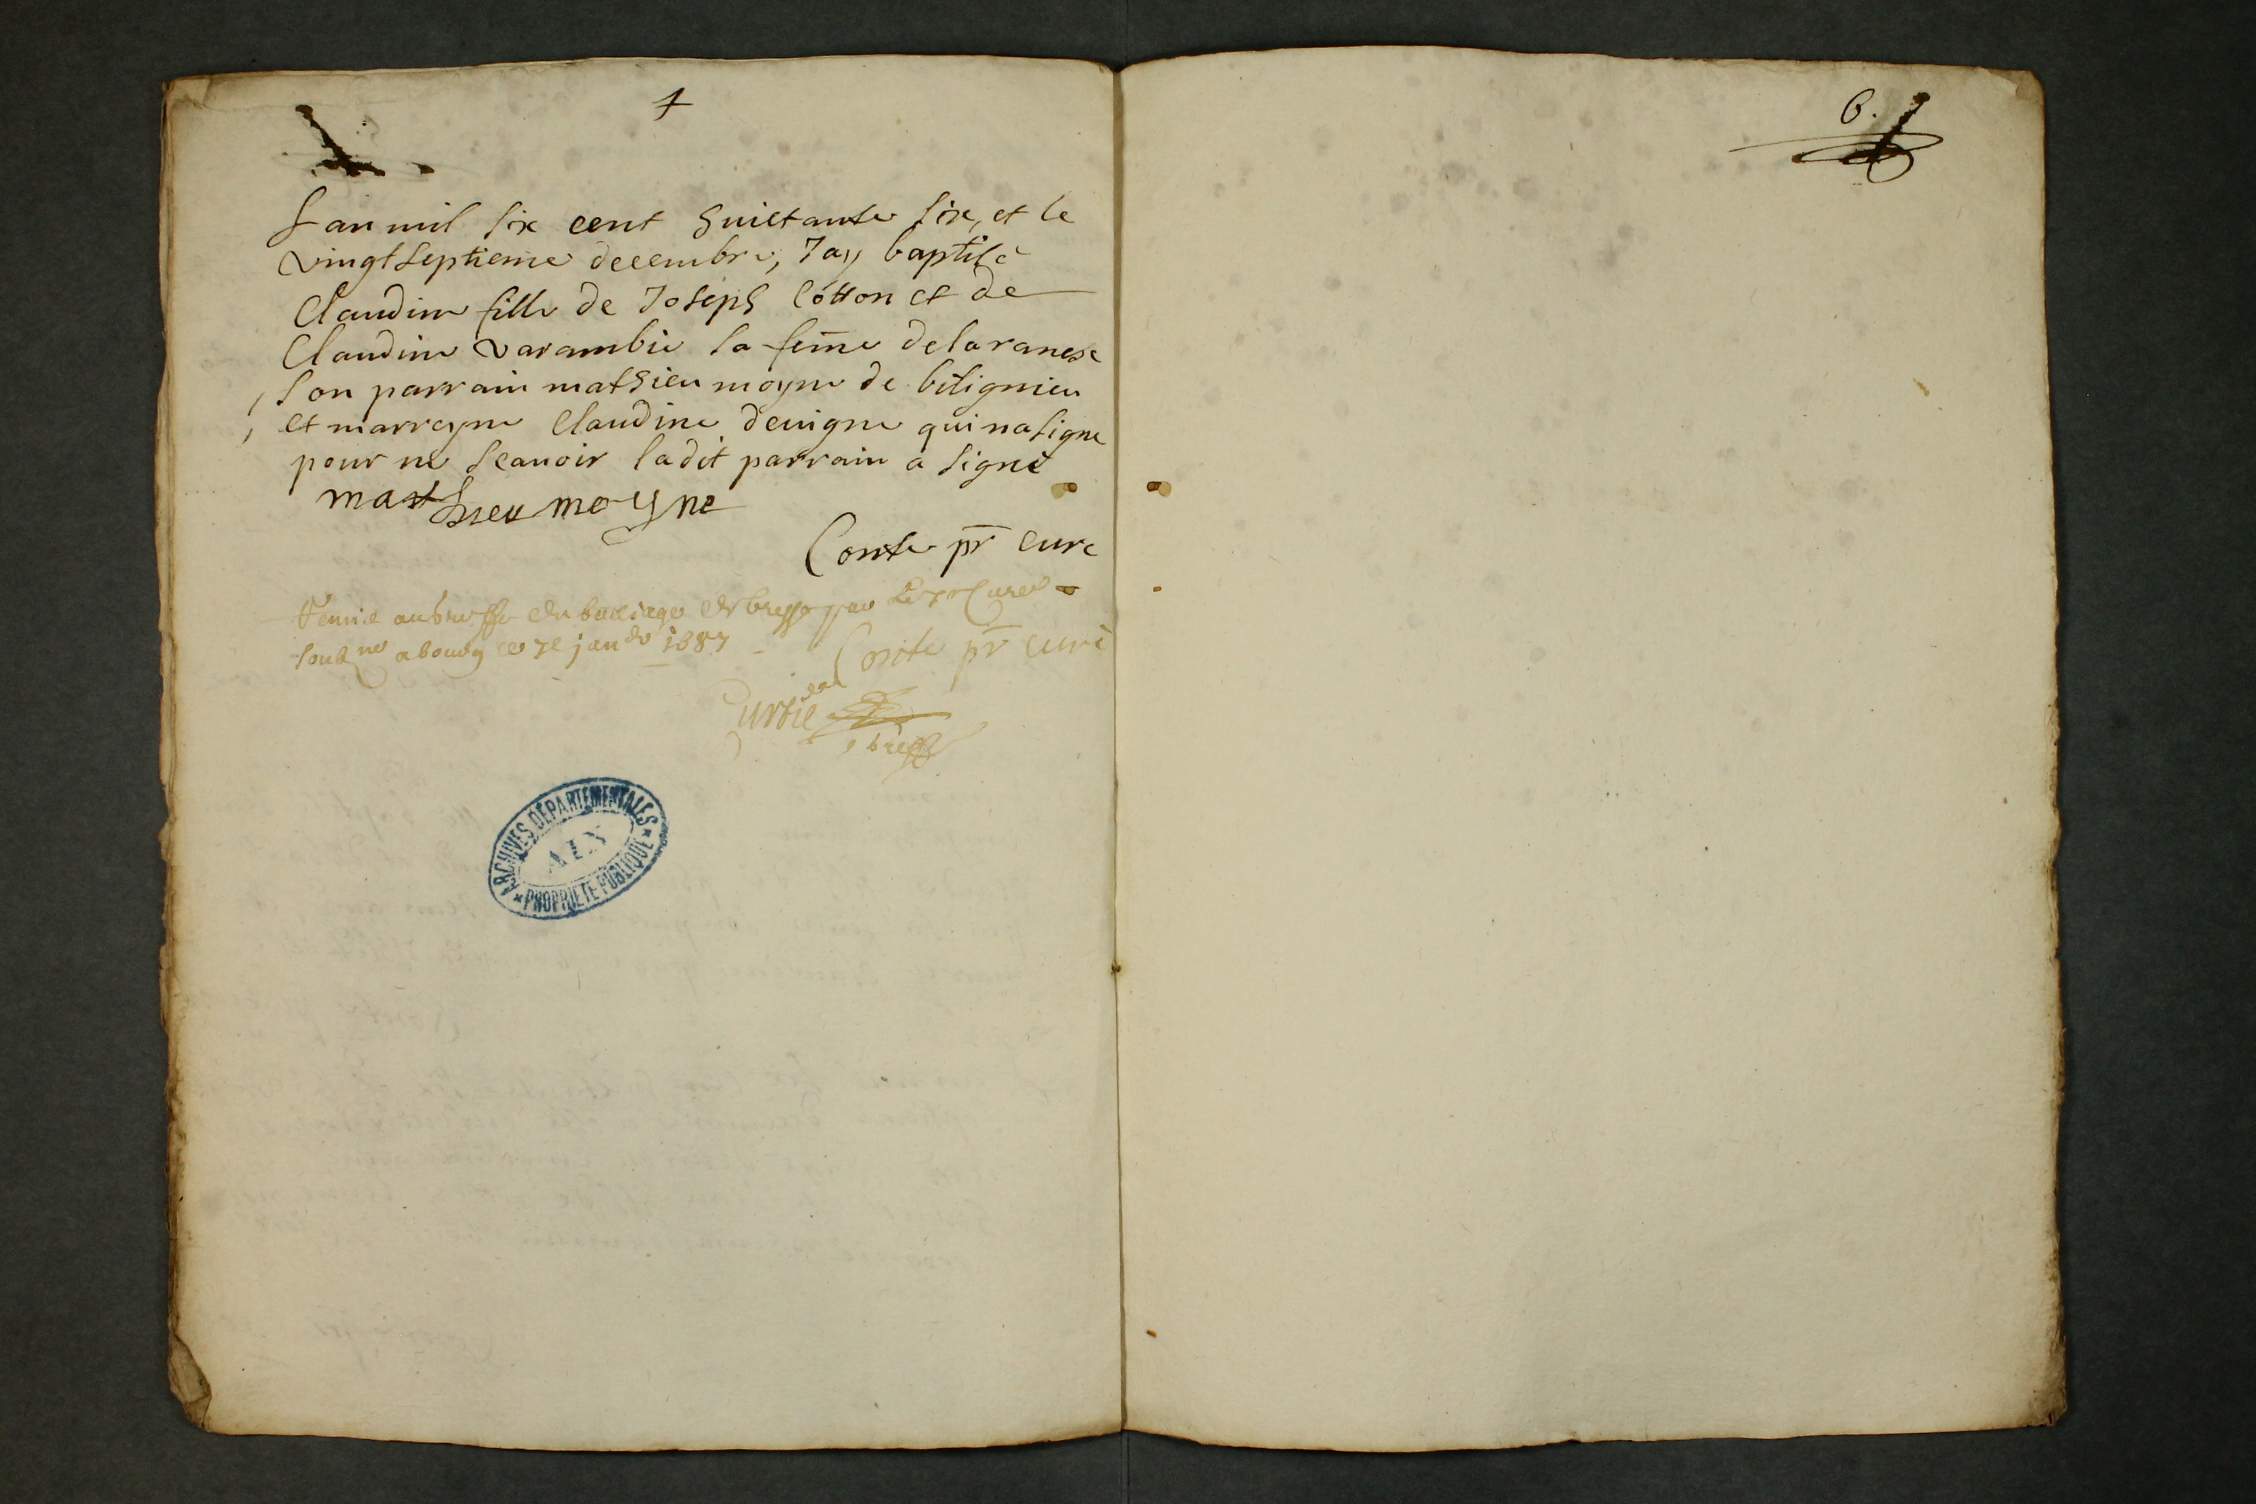 L an mil six cent huictante six, et le
vingt septieme decembre, Jay baptisé
Claudine fille de Joseph Cotton et de
Claudine varambie sa fem̄e de la ranese
son parrain mathieu moyne de bitignieu
et marreyne Claudine deuigne qui na signe
pour ne scauoir ladit parrain a signé
matthieu moyne
Conte pr̄ curé
Remis au greffe du bailliage de bresse par le Sr Curé
soubne a bourg ce 7e jan 1687
Conte pr̄ curé
greff
ARCHIVES DÉPARTEMENTALES
AIN
PROPRIÉTÉ PUBLIQUE
6.